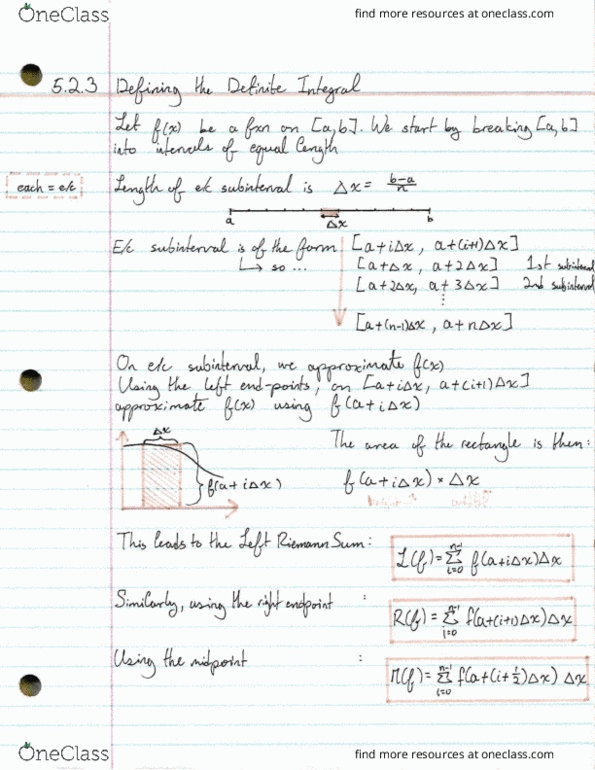 OneClass
find more resources at oneclass.com
5.2.3 Defining the Definite Integral
Let f(x) be a fxn on [a,b]. We start by breaking [a,b]
into intervals of equal length
each = e/c
Length of e/c subinterval is Δx = (b-a)/n
a Δx b
E/c subinterval is of the form [a+iΔx, a+(i+1)Δx]
↳ so ... [a+Δx, a+2Δx] 1st subinterval
[a+2Δx, a+3Δx] 2nd subinterval
⋮
[a+(n-1)Δx, a+nΔx]
On e/c subinterval, we approximate f(x)
Using the left end-points, on [a+iΔx, a+(i+1)Δx]
approximate f(x) using f(a+iΔx)
Δx
The area of the rectangle is then:
f(a+iΔx)
f(a+iΔx) × Δx
height width
This leads to the Left Riemann Sum: L(f) = Σ_{i=0}^{n-1} f(a+iΔx)Δx
Similarly, using the right endpoint : R(f) = Σ_{i=0}^{n-1} f(a+(i+1)Δx)Δx
Using the midpoint : M(f) = Σ_{i=0}^{n-1} f(a+(i+½)Δx) Δx
OneClass
find more resources at oneclass.com